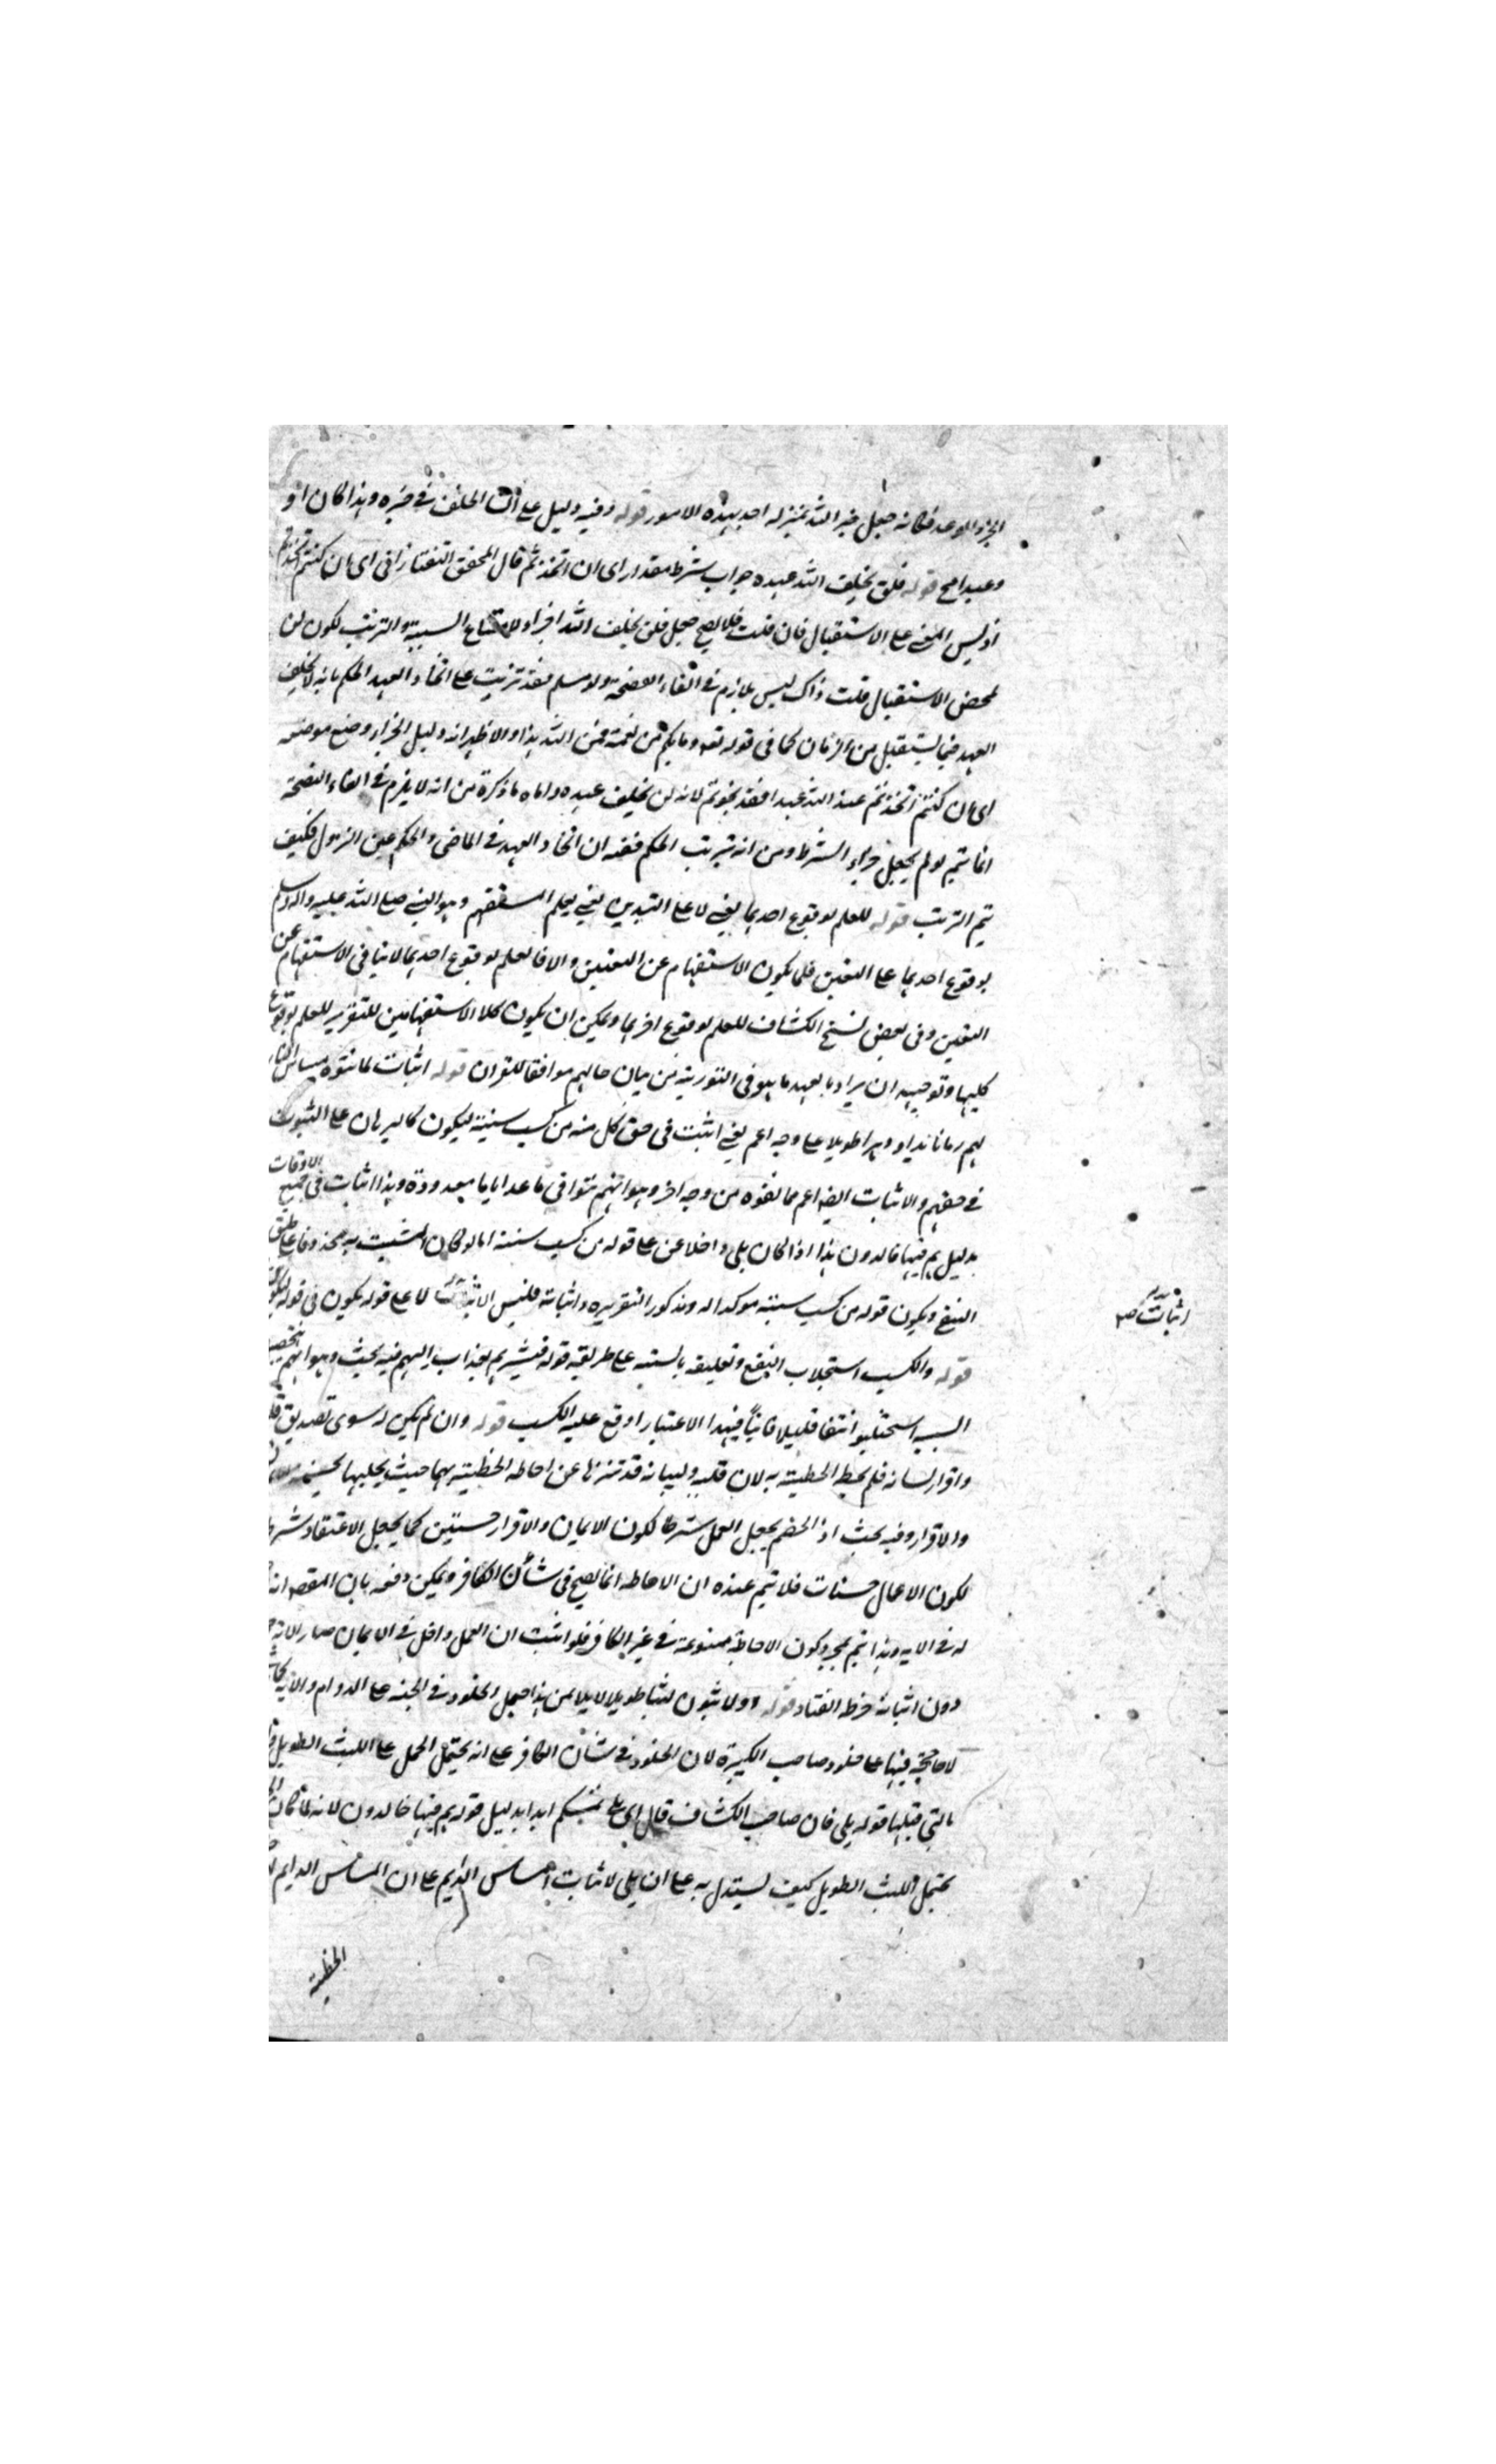 الخبر والوعد فكانه جعل خبر الله بمنزلة احد بهذه الامور قوله وفيه دليل على ان الخلف في خبره وهذا كان او
وعيدا مح قوله فلن يخلف الله عهده جواب شرط مقدر اى ان اتخذتم قال المحقق التفتازانى اى ان كنتم اتخذتم
اذ ليس المعنى على الاستقبال فان قلت فلا يصح جعل فلن يخلف الله جزاء لامتناع السببية والترتب لكون لن
لمحض الاستقبال قلت ذاك ليس بلازم في الفاء الفصيحة ولو سلم فقد ترتب على اتخاذ العهد الحكم بانه لا يخلف
العهد فيما يستقبل من الزمان كما فى قوله تعه وما بكم من نعمة فمن الله هذا والاظهر انه دليل الجزاء وضع موضعه
اى ان كنتم اتخذتم عند الله عهدا فقد نجوتم لانه لن يخلف عهده واما ما ذكره من انه لا يلزم في الفاء الفصيحة
انما يتم لو لم يجعل جزاء الشرط ومن انه ترتب الحكم ففيه ان اتخاذ العهد في الماضى والحكم عين النزول فكيف
يتم الترتب قوله للعلم بوقوع احدهما يعني لا على التعيين يعني يعلم المستفهم وهو النبي صلى الله عليه واله وسلم
بوقوع احدهما على التعين فلا يكون الاستفهام عن التعيين والا فالعلم بوقوع احدهما لا ينافى الاستفهام عن
التعين وفى بعض نسخ الكشاف للعلم بوقوع اخرهما ويمكن ان يكون كلا الاستفهامين للتقرير للعلم بوقوع
كليهما وتوجيهه ان يراد بالعهد ما هو فى التورية من بيان حالهم موافقا للقران قوله اثبات لما نفوه من مساس النار
لهم زمانا مديدا ودهرا طويلا على وجه اعم يعني اثبت فى حق كل من كسب سيئة ليكون كالبرهان على الثبوت
في حقهم والاثبات ايضا اعم مما نفوه من وجه اخر وهو انهم نفوا فى ما عدا اياما معدودة وهذا اثبات فى جميع الاوقات
بدليل هم فيها خالدون هذا اذا كان بلى داخلا على قوله من كسب سيئة اما لو كان المثبت به محذوفا على طبق
النفي ويكون قوله من كسب سيئة موكدا له ومذكورا لتقريره واثباته فليس الاثبات لا على قوله يكون فى قوله
قوله والكسب استجلاب النفع وتعليقه بالسيئة على طريقة قوله فبشرهم بعذاب اليم فيه بحث وهو انهم بتحصيل
السيئة استجلبوا نفعا قليلا فانيا فبهذا الاعتبار اوقع عليه الكسب قوله وان لم يكن له سوى تصديق قلبه
واقرار لسانه فلم يحط الخطيئة به لان قلبه ولسانه قد تنزها عن احاطة الخطيئة بهما حيث
والاقرار وفيه بحث اذ الخصم يجعل العمل شرطا لكون الايمان والاقرار حسنتين كما يجعل الاعتقاد شرطا
لكون الاعمال حسنات فلا يتم عنده ان الاحاطة انما تصح فى شأن الكافر ويمكن دفعه بان المقصد انه
له في الاية وهذا يتم بمجرد كون الاحاطة ممنوعة في غير الكافر فلو اثبت ان العمل داخل في الايمان صار الاية
دون اثباته خرط القتاد قوله او لابثون لبثا طويلا من هذا حمل الخلود في الجنة على الدوام والاية كما ترى
لا حجة فيها على خلود صاحب الكبيرة لان الخلود في شأن الكافر على انه يحتمل الحمل على اللبث الطويل
بالتي قبلها قوله بلى فان صاحب الكشاف قال اى بلى تمسكم ابدا بدليل قوله هم فيها خالدون لانه لما كان
يحتمل اللبث الطويل كيف يستدل به على ان بلى لاثبات المساس الدايم على ان المساس الدايم
الخطيئة
اثبات صح